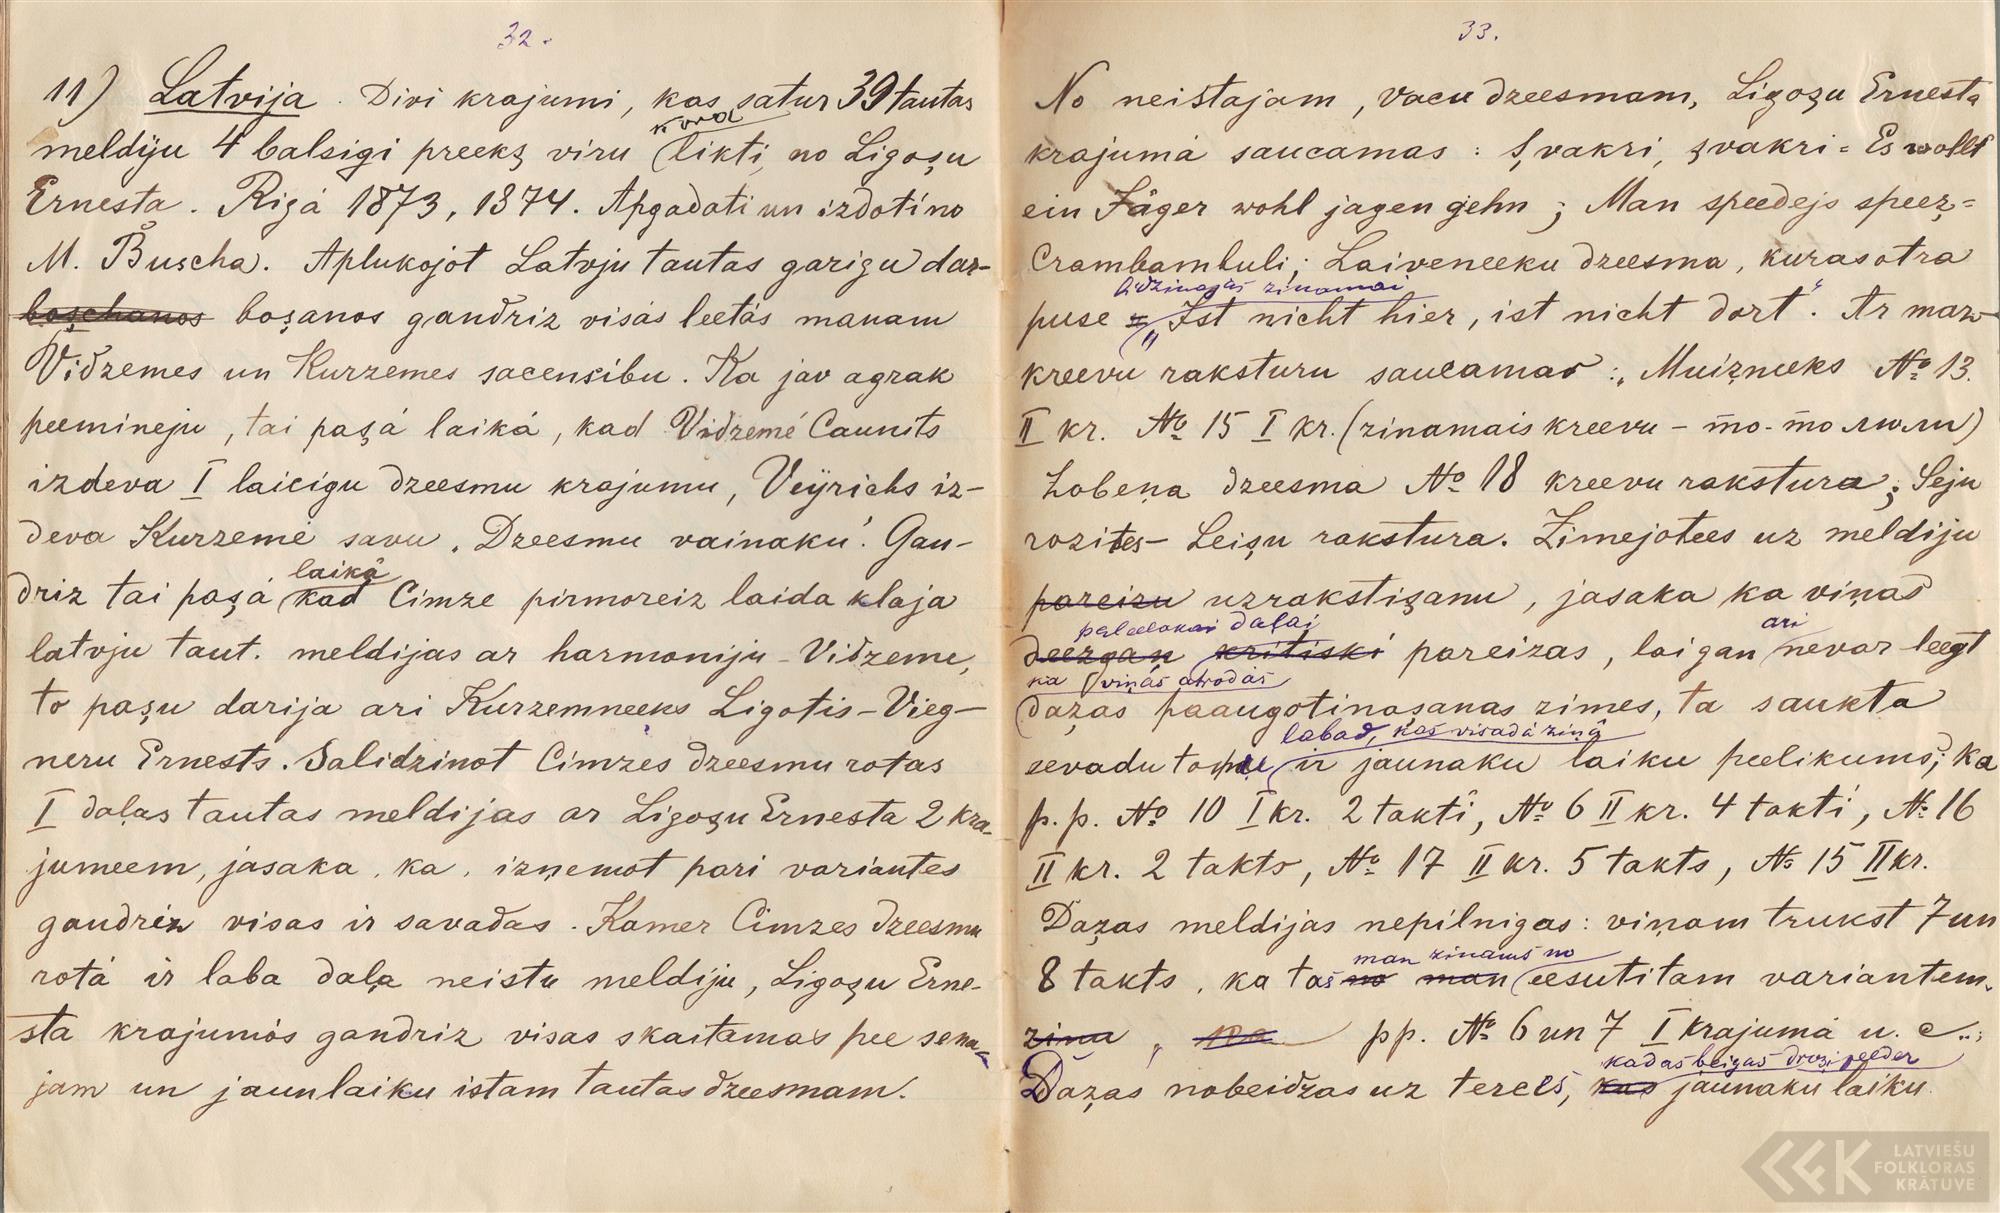 32.
11) Latvija. Divi krajumi, kas satur 39 tautas
kora
meldiju 4 balsigi preekş viru likti, no Ligoşu
Ernesta. Rigá 1873, 1874. Apgadati un izdoti no
M. Buscha. Aplukojot Latvju tautas garigu dar-
boşchanos boşanos gandriz visás leetás manam
Vidzemes un Kurzemes sacensibu. Ka jav agrak
peemineju, tai paşá laiká, kad Vidzemé Caunits
izdeva I laicigu dzeesmu krajumu, Veÿrichs iz-
deva Kurzemé savu „Dzeesmu vainaku“. Gan-
laiká
driz tai paşá kad Cimze pirmoreiz laida klaja
latvju taut. meldijas ar harmoniju - Vidzeme,
to paşu darija ari Kurzemneeks Ligotis-Vieg-
neru Ernests. Salidzinot Cimzes dzeesmu rotas
I daļas tautas meldijas ar Ligoşu Ernesta 2 kra-
jumeem, jasaka, ka, izņemot pari variantes
gandriz visas ir savadas. Kamer Cimzes dzeesmu
rotá ir laba daļa neistu meldiju, Ligoşu Erne-
sta krajumós gandriz visas skaitamas pee sena-
jam un jaunlaiku istam tautas dzeesmam.
33.
No neistajam, vacu dzeesmam, Ligoşu Ernesta
krajumá saucamas: Şvakri, şvakri = Es wollt
ein Jäger wohl jagen gehn; Man speedejs speeķ=
Crambambuli; Laiveneeku dzeesma, kuras otra
lidzinajas zinamai
puse = „Ist nicht hier, ist nicht dort“. Ar maz-
kreevu raksturu saucamas: „Muiẓneeks № 13.
II kr. № 15 I kr. (zinamais kreevu - то-то люли)
Lobeņa dzeesma № 18 kreevu rakstura; Seju
rozites - Leişu rakstura. Zimejotees uz meldiju
pareizu uzrakstişanu, jasaka ka viņas
paleelakai daļai ari
deezgan kritiski pareizas, lai gan nevar leegt
ka viņás atrodas
daẓas paaugstinaşanas zimes, ta saukta
labad, kas visadá ziņá
sevadu toņu ir jaunaku laiku peelikums; ka
p. p. № 10 I kr. 2 takti, № 6 II kr. 4 takti, № 16
II kr. 2 takts, № 17 II kr. 5 takts, № 15 II kr.
Daẓas meldijas nepilnigas: viņam trukst 7 un
man zinams no
8 takts, ka tas no man eesutitam variantem
zinu, pp. № 6 un 7 I krajumá u. c.;
kadas beigas drozi peeder
Daẓas nobeidzas uz terces, kas jaunaku laiku
LATVIEŠU
FOLKLORAS
KRĀTUVE